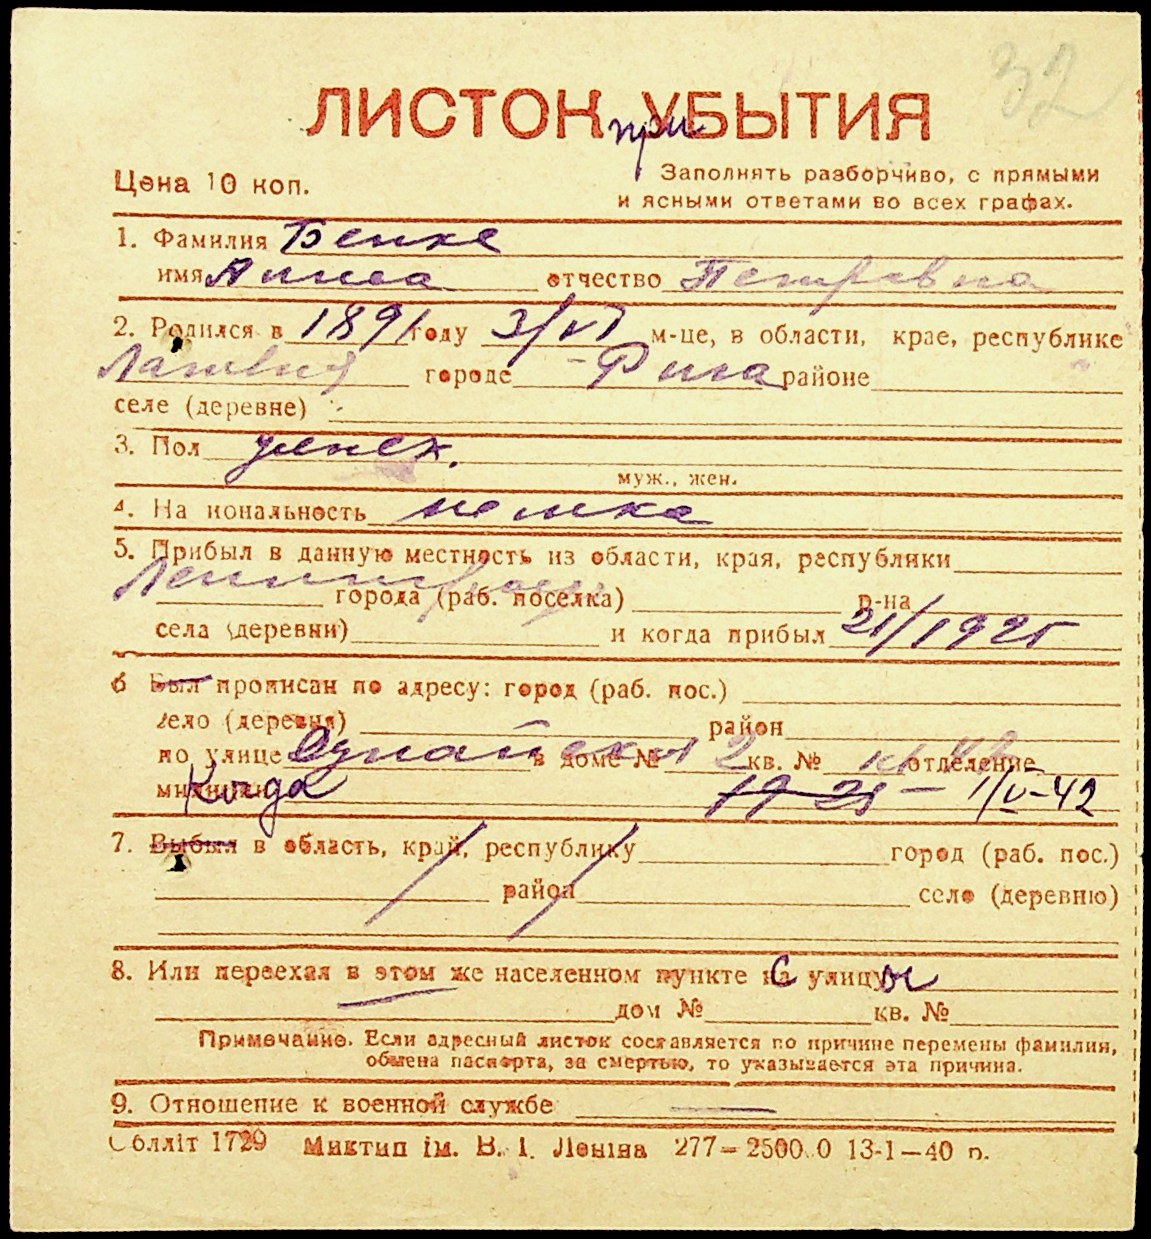 32
ЛИСТОК при УБЫТИЯ
Цена 10 коп.
Заполнять разборчиво, с прямыми
и ясными ответами во всех графах.
1. Фамилия Бенке
имя Анна отчество Петровна
2. Родился в 1891 году 3/VI м-це, в области, крае, республике
Латвия городе Рига районе
селе (деревне)
3. Пол женск.
муж., жен.
4. На иональность немка
5. Прибыл в данную местность из области, края, республики
Ленинград города (раб. поселка) р-на
села (деревни) и когда прибыл 21/1925
6 Был прописан по адресу: город (раб. пос.)
село (деревня) район
по улице в доме № 2 кв. № отделение
милиции Когда 19 21 – 1/V-42
7. Выбыл в область, край, республику город (раб. пос.)
район село (деревню)
8. Или переехал в этом же населенном пункте С улицы
дом № кв. №
Примечание. Если адресный листок составляется по причине перемены фамилии,
обмена паспорта, за смертью, то указывается эта причина.
9. Отношение к военной службе —
Обллiт 1729 Миктип iм. В. I. Ленiна 277—2500 0 13-1—40 р.